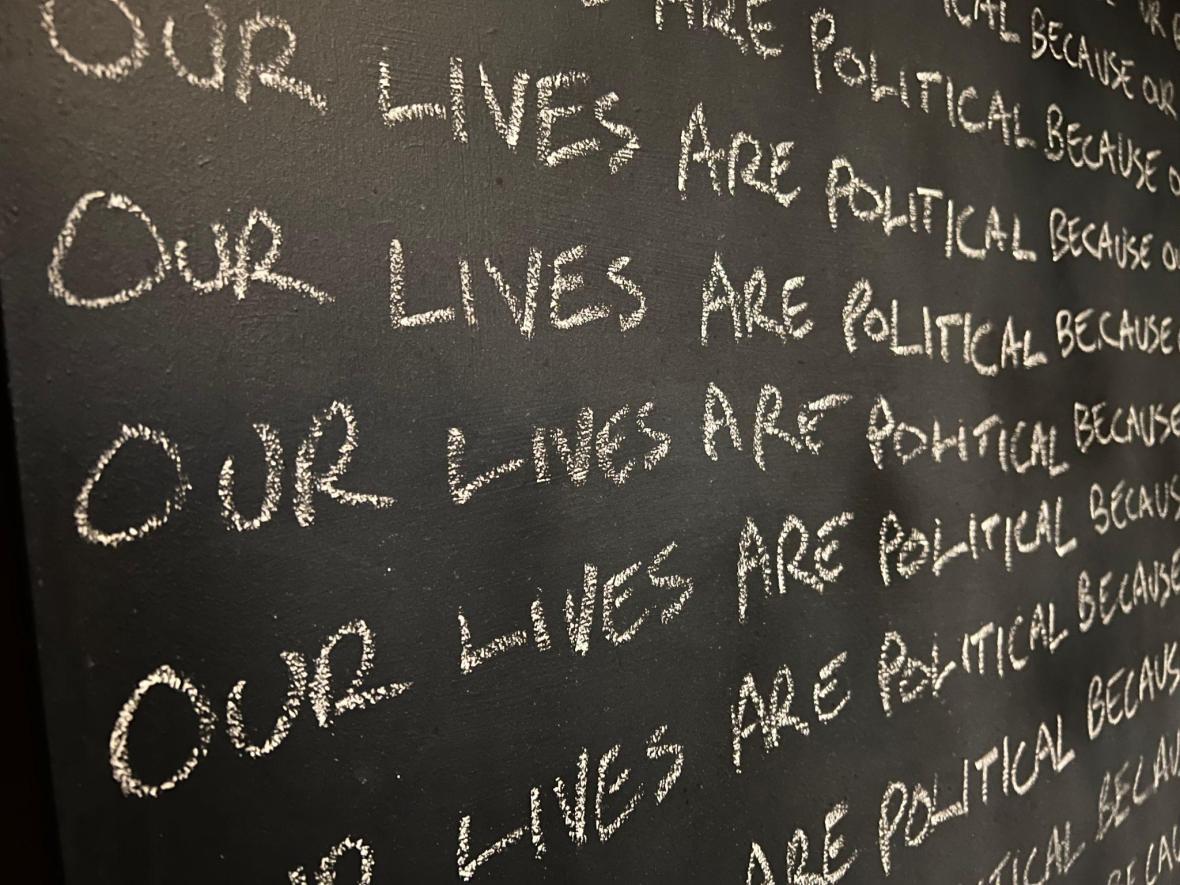 BECAUSE OUR
ARE POLITICAL BECAUSE
OUR LIVES ARE POLITICAL BECAUSE
OUR LIVES ARE POLITICAL BECAUSE
OUR LIVES ARE POLITICAL BECAUSE
OUR LIVES ARE POLITICAL BECAUS
LIVES ARE POLITICAL BECAUSE
ARE POLITICAL BECAUS
TICAL BECAU
ECAU